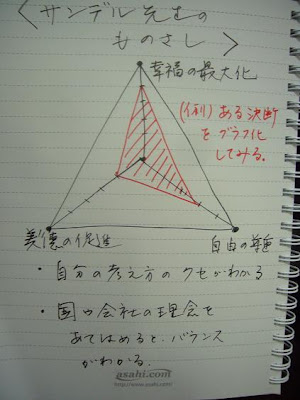 ＜サンデル先生の
ものさし＞
幸福の最大化
(例) ある決断
をグラフ化
してみる。
美徳の促進
自由の尊重
・自分の考え方のクセがわかる
・国や会社の理念を
あてはめると、バランス
がわかる。
asahi.com
http://www.asahi.com/